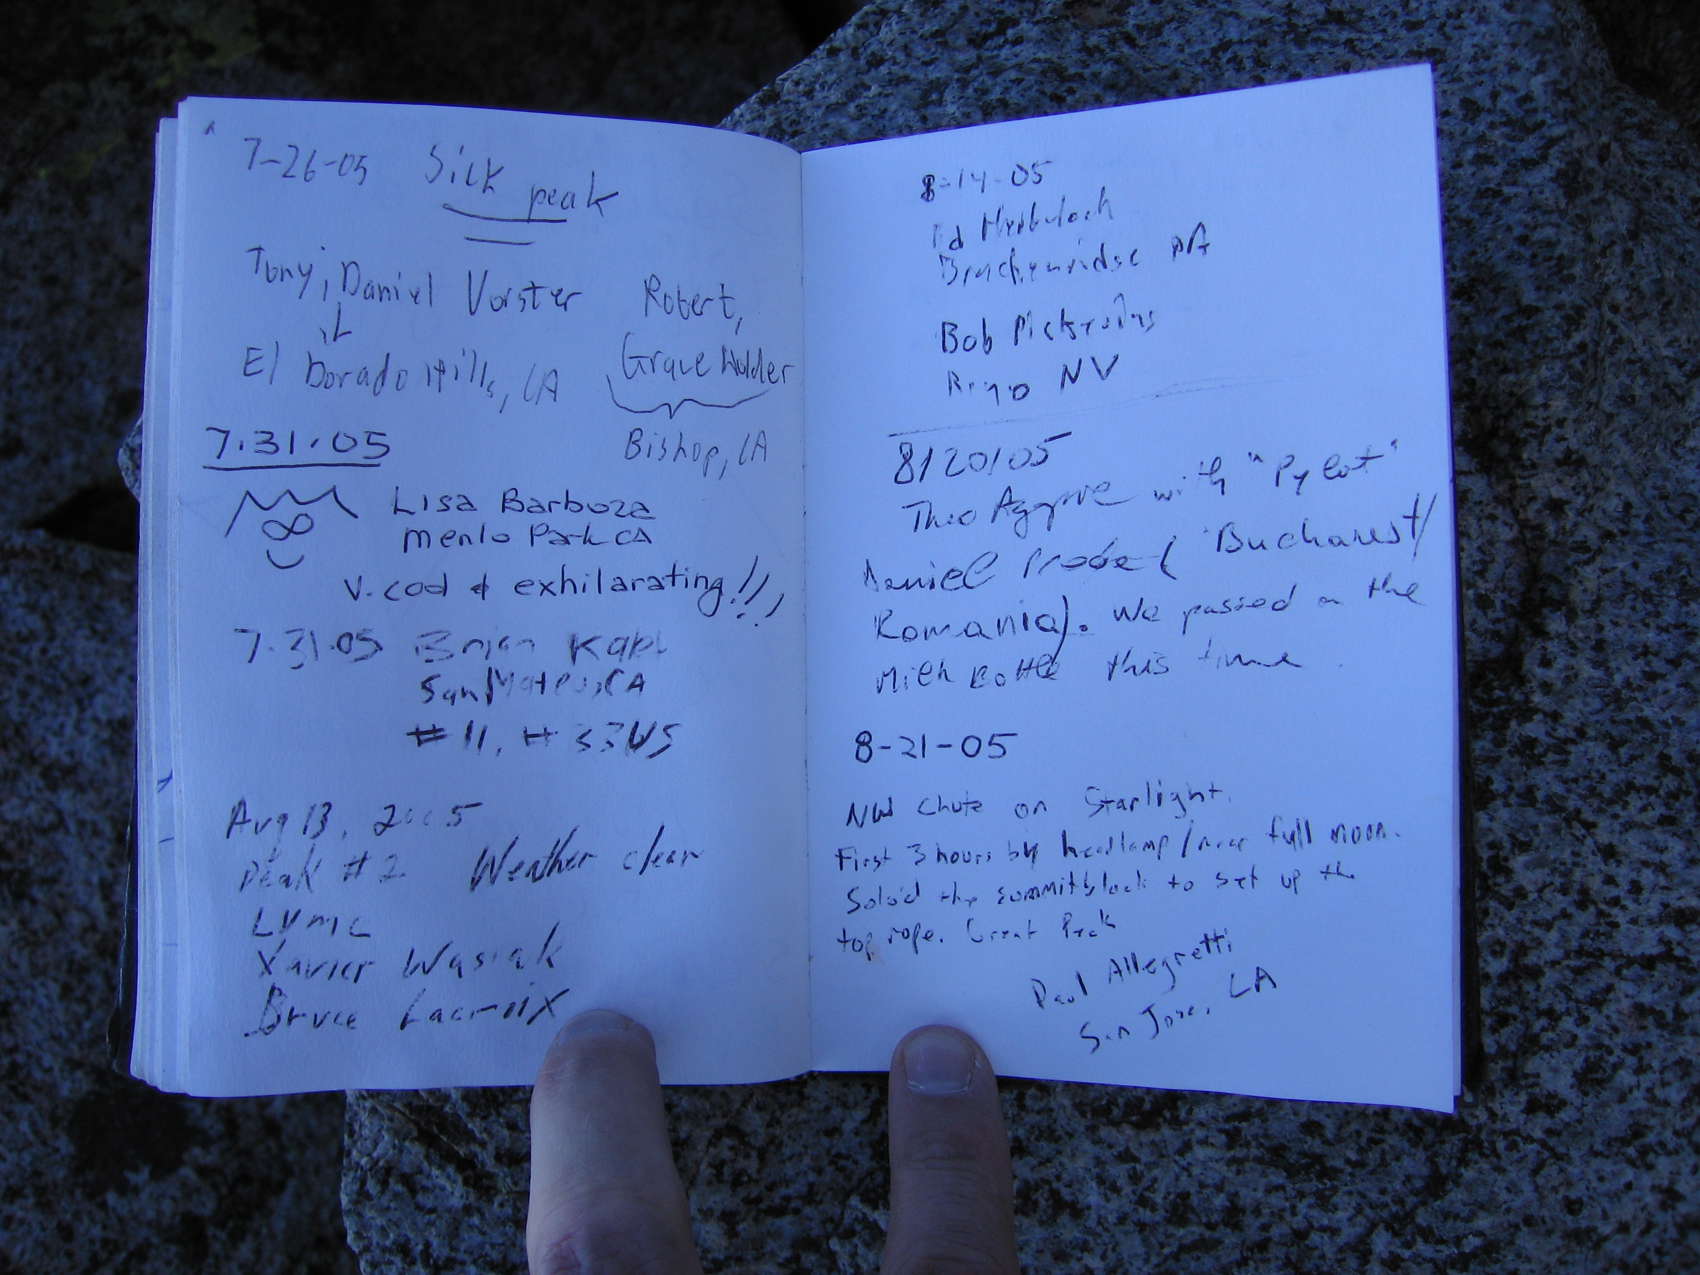 7-26-05 Sick peak
Tony, Daniel Vorster Robert,
El Dorado Hills, CA Grace Wolder
Bishop, CA
7.31.05
Lisa Barboza
Menlo Park CA
V. cool & exhilarating!!!
7.31.05 Brian Kabl
San Mateo, CA
#11, #33 US
Aug 13, 2005
Peak #2 Weather clear
LVMC
Xavier Wasiak
Bruce Lacroix
8-14-05
Ed
Brackenridge PA
Bob
Reno NV
8/20/05
Theo with "Pylot"
Daniel (Bucharest/
Romania). We passed on the
Milk Bottle this time.
8-21-05
NW Chute on Starlight.
First 3 hours by headlamp/near full moon.
Solo'd the summit block to set up the
top rope. Great Peak
Paul Allegretti
San Jose, CA